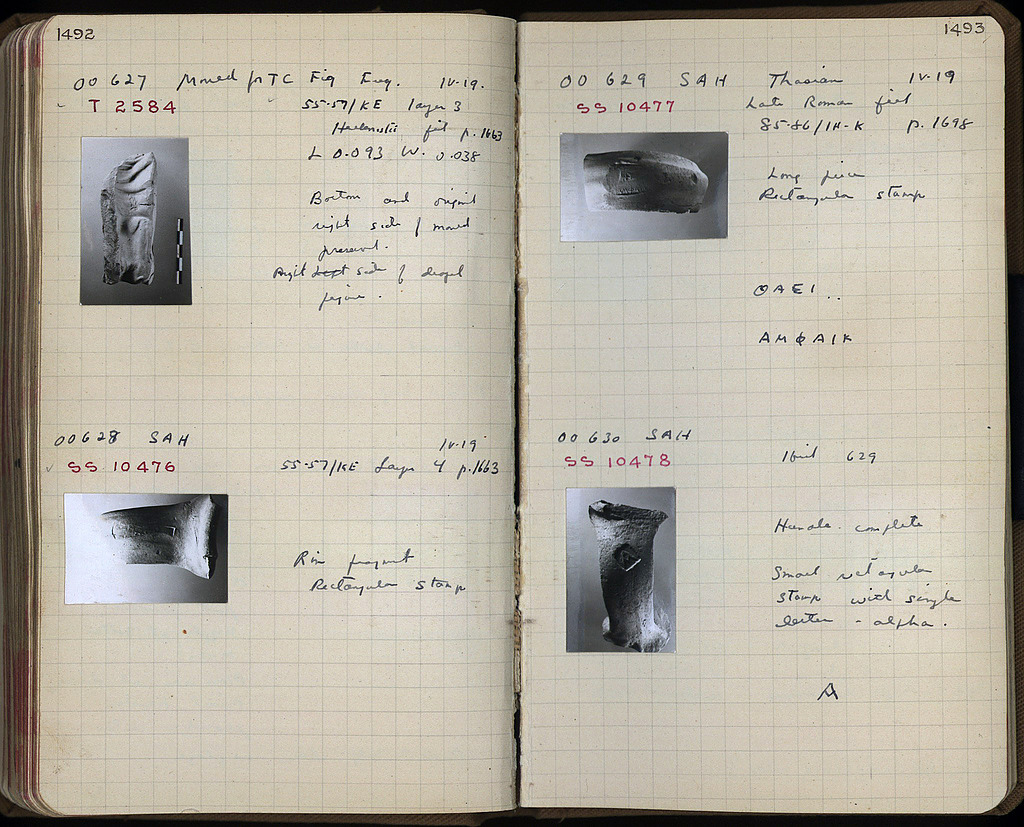 1492
OO 627 Mould for TC Fig Frag. IV-19.
T 2584
55-57/KE layer 3
Hellenistic fill p. 1663
L 0.093 W. 0.038
Bottom and original
right side of mould
preserved.
Right side of draped
figure.
OO 628 SAH
IV-19
SS 10476
55-57/KE Layer 4 p. 1663
Rim fragment
Rectangular stamp
1493
OO 629 SAH Thasian IV-19
SS 10477
Late Roman fill
85-86/IH-K p. 1698
Long piece
Rectangular stamp
ΘΑΣΙ..
ΑΜΦΑΙΚ
OO 630 SAH
SS 10478
629
Handle complete
Small rectangular
stamp with single
letter - alpha.
A